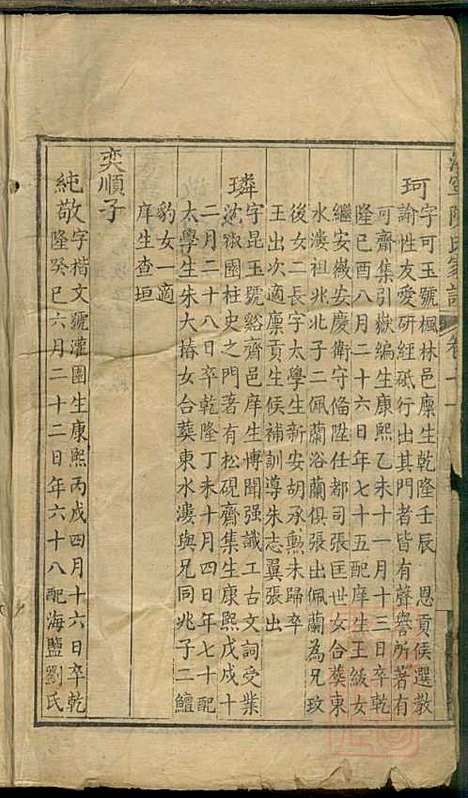 海寧陳氏家譜 卷十一
珂 字可玉號楓林邑廩生乾隆壬辰 恩貢候選教
諭性友愛研經砥行出其門者皆有聲譽所著有
可齋集引嶽編生康熙乙未十一月十三日卒乾
隆己酉八月二十六日年七十五配庠生王級女
繼安徽安慶衛守備陞任都司張匡世女合葬東
水漊祖兆北子二佩蘭浴蘭俱張出佩蘭為兄玟
後女二長字太學生新安胡承勲未歸卒
王出次適廩貢生候補訓導朱志翼張出
璘 字昆玉號谿齊邑庠生博聞强識工古文詞受業
沈椒園柱史之門著有松硯齊集生康熙戊戌十
二月二十八日卒乾隆丁未十月四日年七十配
太學生朱大椿女合葬東水漊與兄同兆子二鱣
豹女一適
庠生查垣
奕順子
純敬 字楷文號灌園生康熙丙戌四月十六日卒乾
隆癸巳六月二十二日年六十八配海鹽劉氏